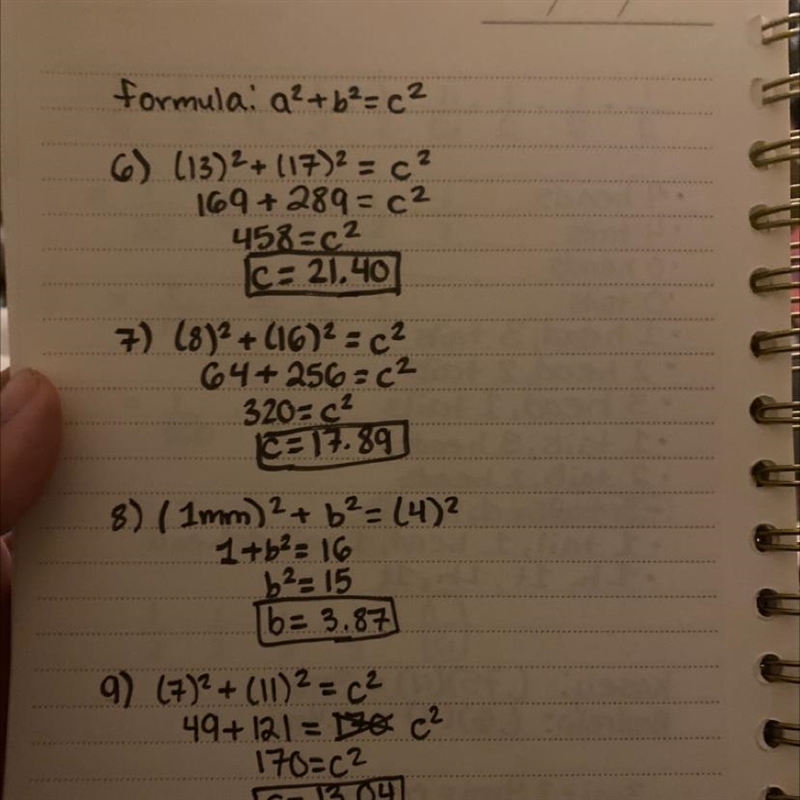 formula: a²+b²=c²
6) (13)²+(17)²= c²
169+289= c²
458=c²
c= 21.40
7) (8)²+(16)²=c²
64+256=c²
320=c²
c=17.89
8) (1mm)²+ b²=(4)²
1+b²= 16
b²=15
b= 3.87
9) (7)²+(11)²=c²
49+121= c²
170=c²
c=13.04